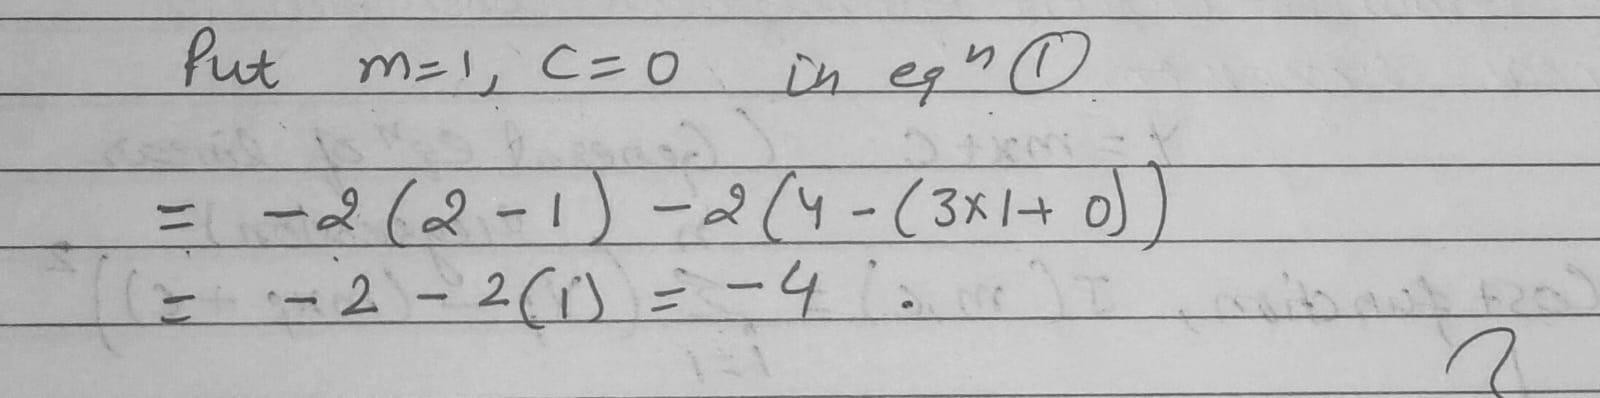 Put m=1, C=0 in eqⁿ ①
= -2(2-1) -2(4-(3×1+0))
= -2-2(1) = -4.